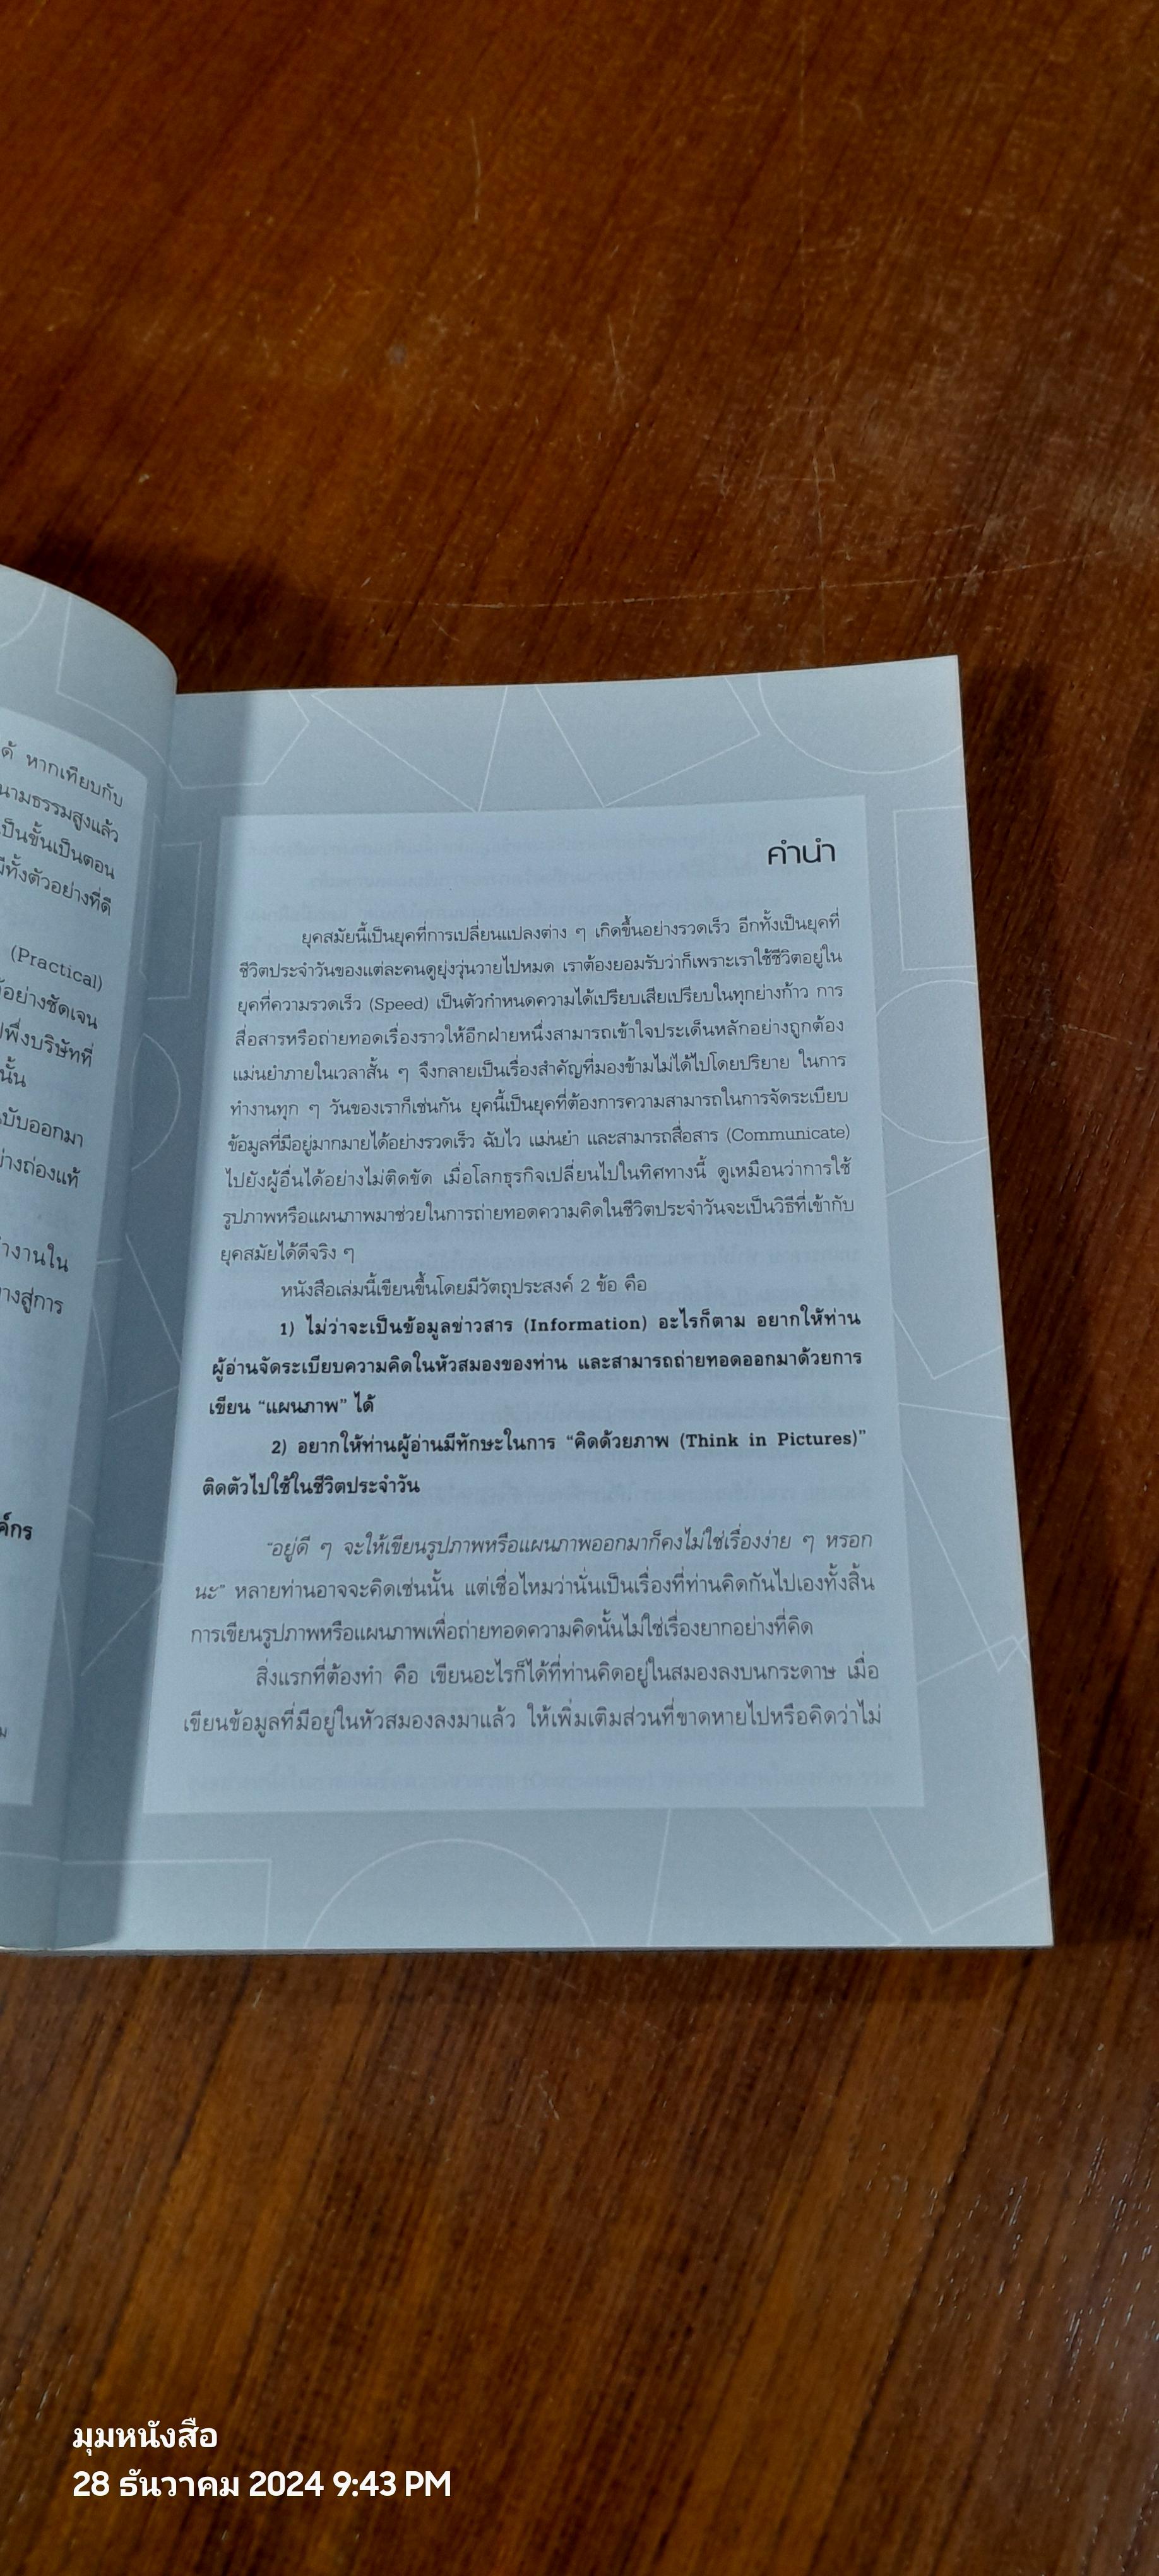 ด้ หากเทียบกับ
นามธรรมสูงแล้ว
เป็นขั้นเป็นตอน
มีทั้งตัวอย่างที่ดี
(Practical)
อย่างชัดเจน
พึ่งบริษัทที่
นั้น
บับออกมา
ย่างถ่องแท้
ทำงานใน
ทางสู่การ
ค์กร
คำนำ
ยุคสมัยนี้เป็นยุคที่การเปลี่ยนแปลงต่าง ๆ เกิดขึ้นอย่างรวดเร็ว อีกทั้งเป็นยุคที่
ชีวิตประจำวันของแต่ละคนดูยุ่งวุ่นวายไปหมด เราต้องยอมรับว่าก็เพราะเราใช้ชีวิตอยู่ใน
ยุคที่ความรวดเร็ว (Speed) เป็นตัวกำหนดความได้เปรียบเสียเปรียบในทุกย่างก้าว การ
สื่อสารหรือถ่ายทอดเรื่องราวให้อีกฝ่ายหนึ่งสามารถเข้าใจประเด็นหลักอย่างถูกต้อง
แม่นยำภายในเวลาสั้น ๆ จึงกลายเป็นเรื่องสำคัญที่มองข้ามไม่ได้ไปโดยปริยาย ในการ
ทำงานทุก ๆ วันของเราก็เช่นกัน ยุคนี้เป็นยุคที่ต้องการความสามารถในการจัดระเบียบ
ข้อมูลที่มีอยู่มากมายได้อย่างรวดเร็ว ฉับไว แม่นยำ และสามารถสื่อสาร (Communicate)
ไปยังผู้อื่นได้อย่างไม่ติดขัด เมื่อโลกธุรกิจเปลี่ยนไปในทิศทางนี้ ดูเหมือนว่าการใช้
รูปภาพหรือแผนภาพมาช่วยในการถ่ายทอดความคิดในชีวิตประจำวันจะเป็นวิธีที่เข้ากับ
ยุคสมัยได้ดีจริง ๆ
หนังสือเล่มนี้เขียนขึ้นโดยมีวัตถุประสงค์ 2 ข้อ คือ
1) ไม่ว่าจะเป็นข้อมูลข่าวสาร (Information) อะไรก็ตาม อยากให้ท่าน
ผู้อ่านจัดระเบียบความคิดในหัวสมองของท่าน และสามารถถ่ายทอดออกมาด้วยการ
เขียน “แผนภาพ” ได้
2) อยากให้ท่านผู้อ่านมีทักษะในการ “คิดด้วยภาพ (Think in Pictures)”
ติดตัวไปใช้ในชีวิตประจำวัน
“อยู่ดี ๆ จะให้เขียนรูปภาพหรือแผนภาพออกมาก็คงไม่ใช่เรื่องง่าย ๆ หรอก
นะ” หลายท่านอาจจะคิดเช่นนั้น แต่เชื่อไหมว่านั่นเป็นเรื่องที่ท่านคิดกันไปเองทั้งสิ้น
การเขียนรูปภาพหรือแผนภาพเพื่อถ่ายทอดความคิดนั้นไม่ใช่เรื่องยากอย่างที่คิด
สิ่งแรกที่ต้องทำ คือ เขียนอะไรก็ได้ที่ท่านคิดอยู่ในสมองลงบนกระดาษ เมื่อ
เขียนข้อมูลที่มีอยู่ในหัวสมองลงมาแล้ว ให้เพิ่มเติมส่วนที่ขาดหายไปหรือคิดว่าไม่
มุมหนังสือ
28 ธันวาคม 2024 9:43 PM